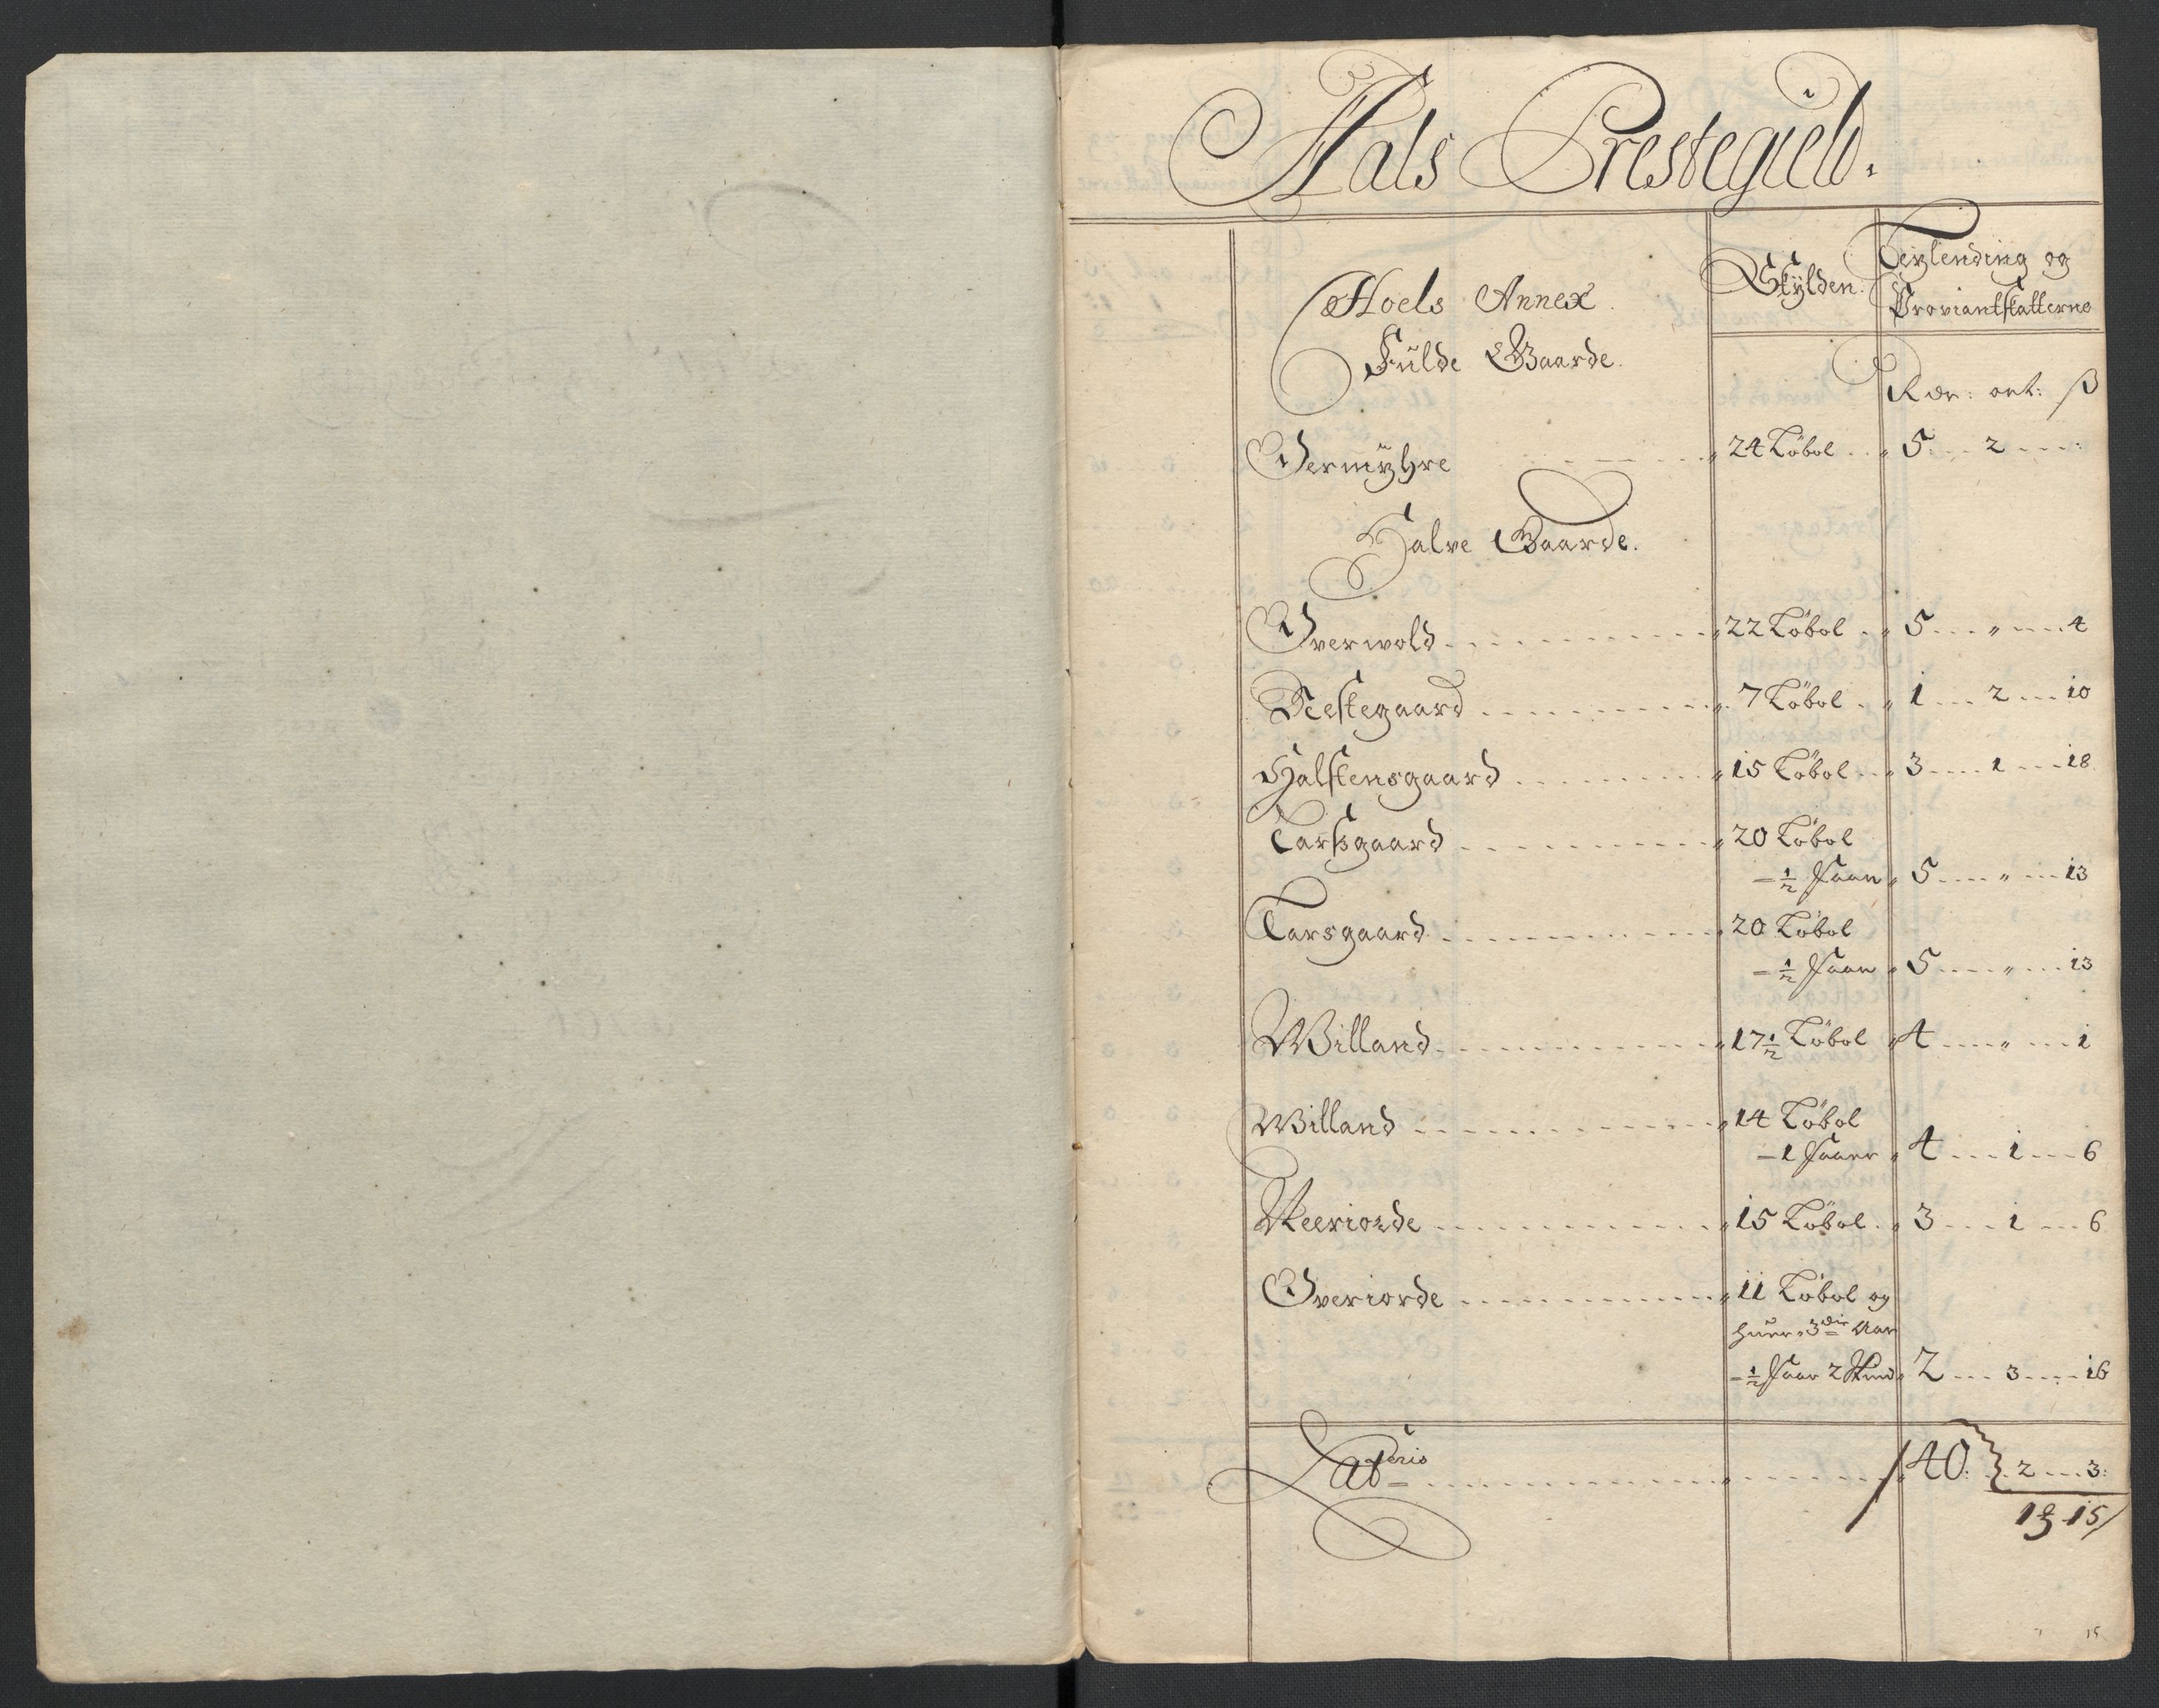 Aals Prestegield.
Hoels Annex.
Skylden.
Leylending og
Proviantskatterne
Fulde Gaarde.
Rdr: ort: β
Øermyhre 24 Løbol 5 2
Halve Gaarde.
Øverwold 22 Løbol 5 " 4
Nestegaard 7 Løbol 1 2 10
Halstensgaard 15 Løbol 3 1 18
Larssgaard 20 Løbol
- 1/2 faar 5 " 13
Larsgaard 20 Løbol
- 1/2 faar 5 " 13
Willand 17 1/2 Løbol 4 " 1
Willand 14 Løbol
- 1 faar 4 1 6
Neeriorde 15 Løbol 3 1 6
Øveriorde 11 Løbol og
huer 3die Aar
- 1/2 faar 2 Skind 2 3 16
Lateris 40: 2 3:
1 3 15
15